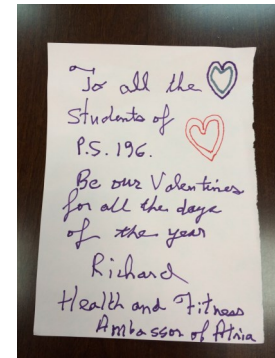 To all the
Students of
P.S. 196.
Be our Valentines
for all the days
of the year
Richard
Health and Fitness
Ambassor of Atria